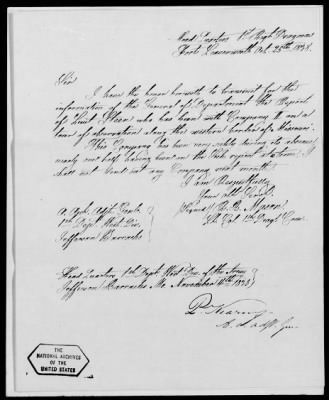 Head Quarters 1st Regt Dragoons
Fort Leavenworth Oct. 25th 1838.
Sir
I have the honor herewith to transmit for the
information of the General of Department the Report
of Lieut. who has been with Company H on a
tour of observation along the western border of Missouri.
This Company has been very sickly during its absence
nearly one half having been on the Sick report at a time. I
shall not send out any Company next month.
I am Respectfully
Your obt. Servt.
(Signed) R. B. Mason
Lt. Col. 1st Drags. Com.
A. Actg. Adjt. Genl.
1st Dept. West. Div.
Jefferson Barracks
Head Quarters 1st Dept. West. Div. of the Army
Jefferson Barracks Mo. November 1838
P. Kearny
A. Adjt. Gen.
THE
NATIONAL ARCHIVES
OF THE
UNITED STATES